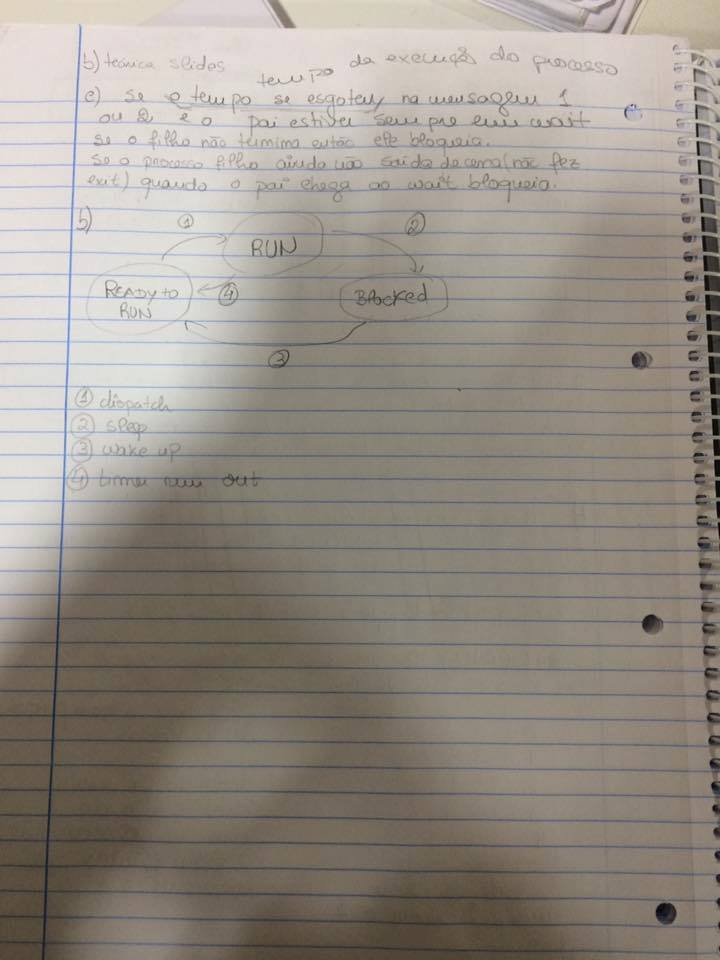 b) teórica slides
tempo da execução do processo
c) se o tempo se esgotou na mensagem 1
ou 2 e o pai estiver sempre em wait
se o filho não termina então ele bloqueia.
se o processo filho ainda não saido de cena (não fez
exit) quando o pai chega ao wait bloqueia.
b)
① ②
RUN
READY TO RUN ④ Blocked
③
① dispatch
② sleep
③ wake up
④ timer run out